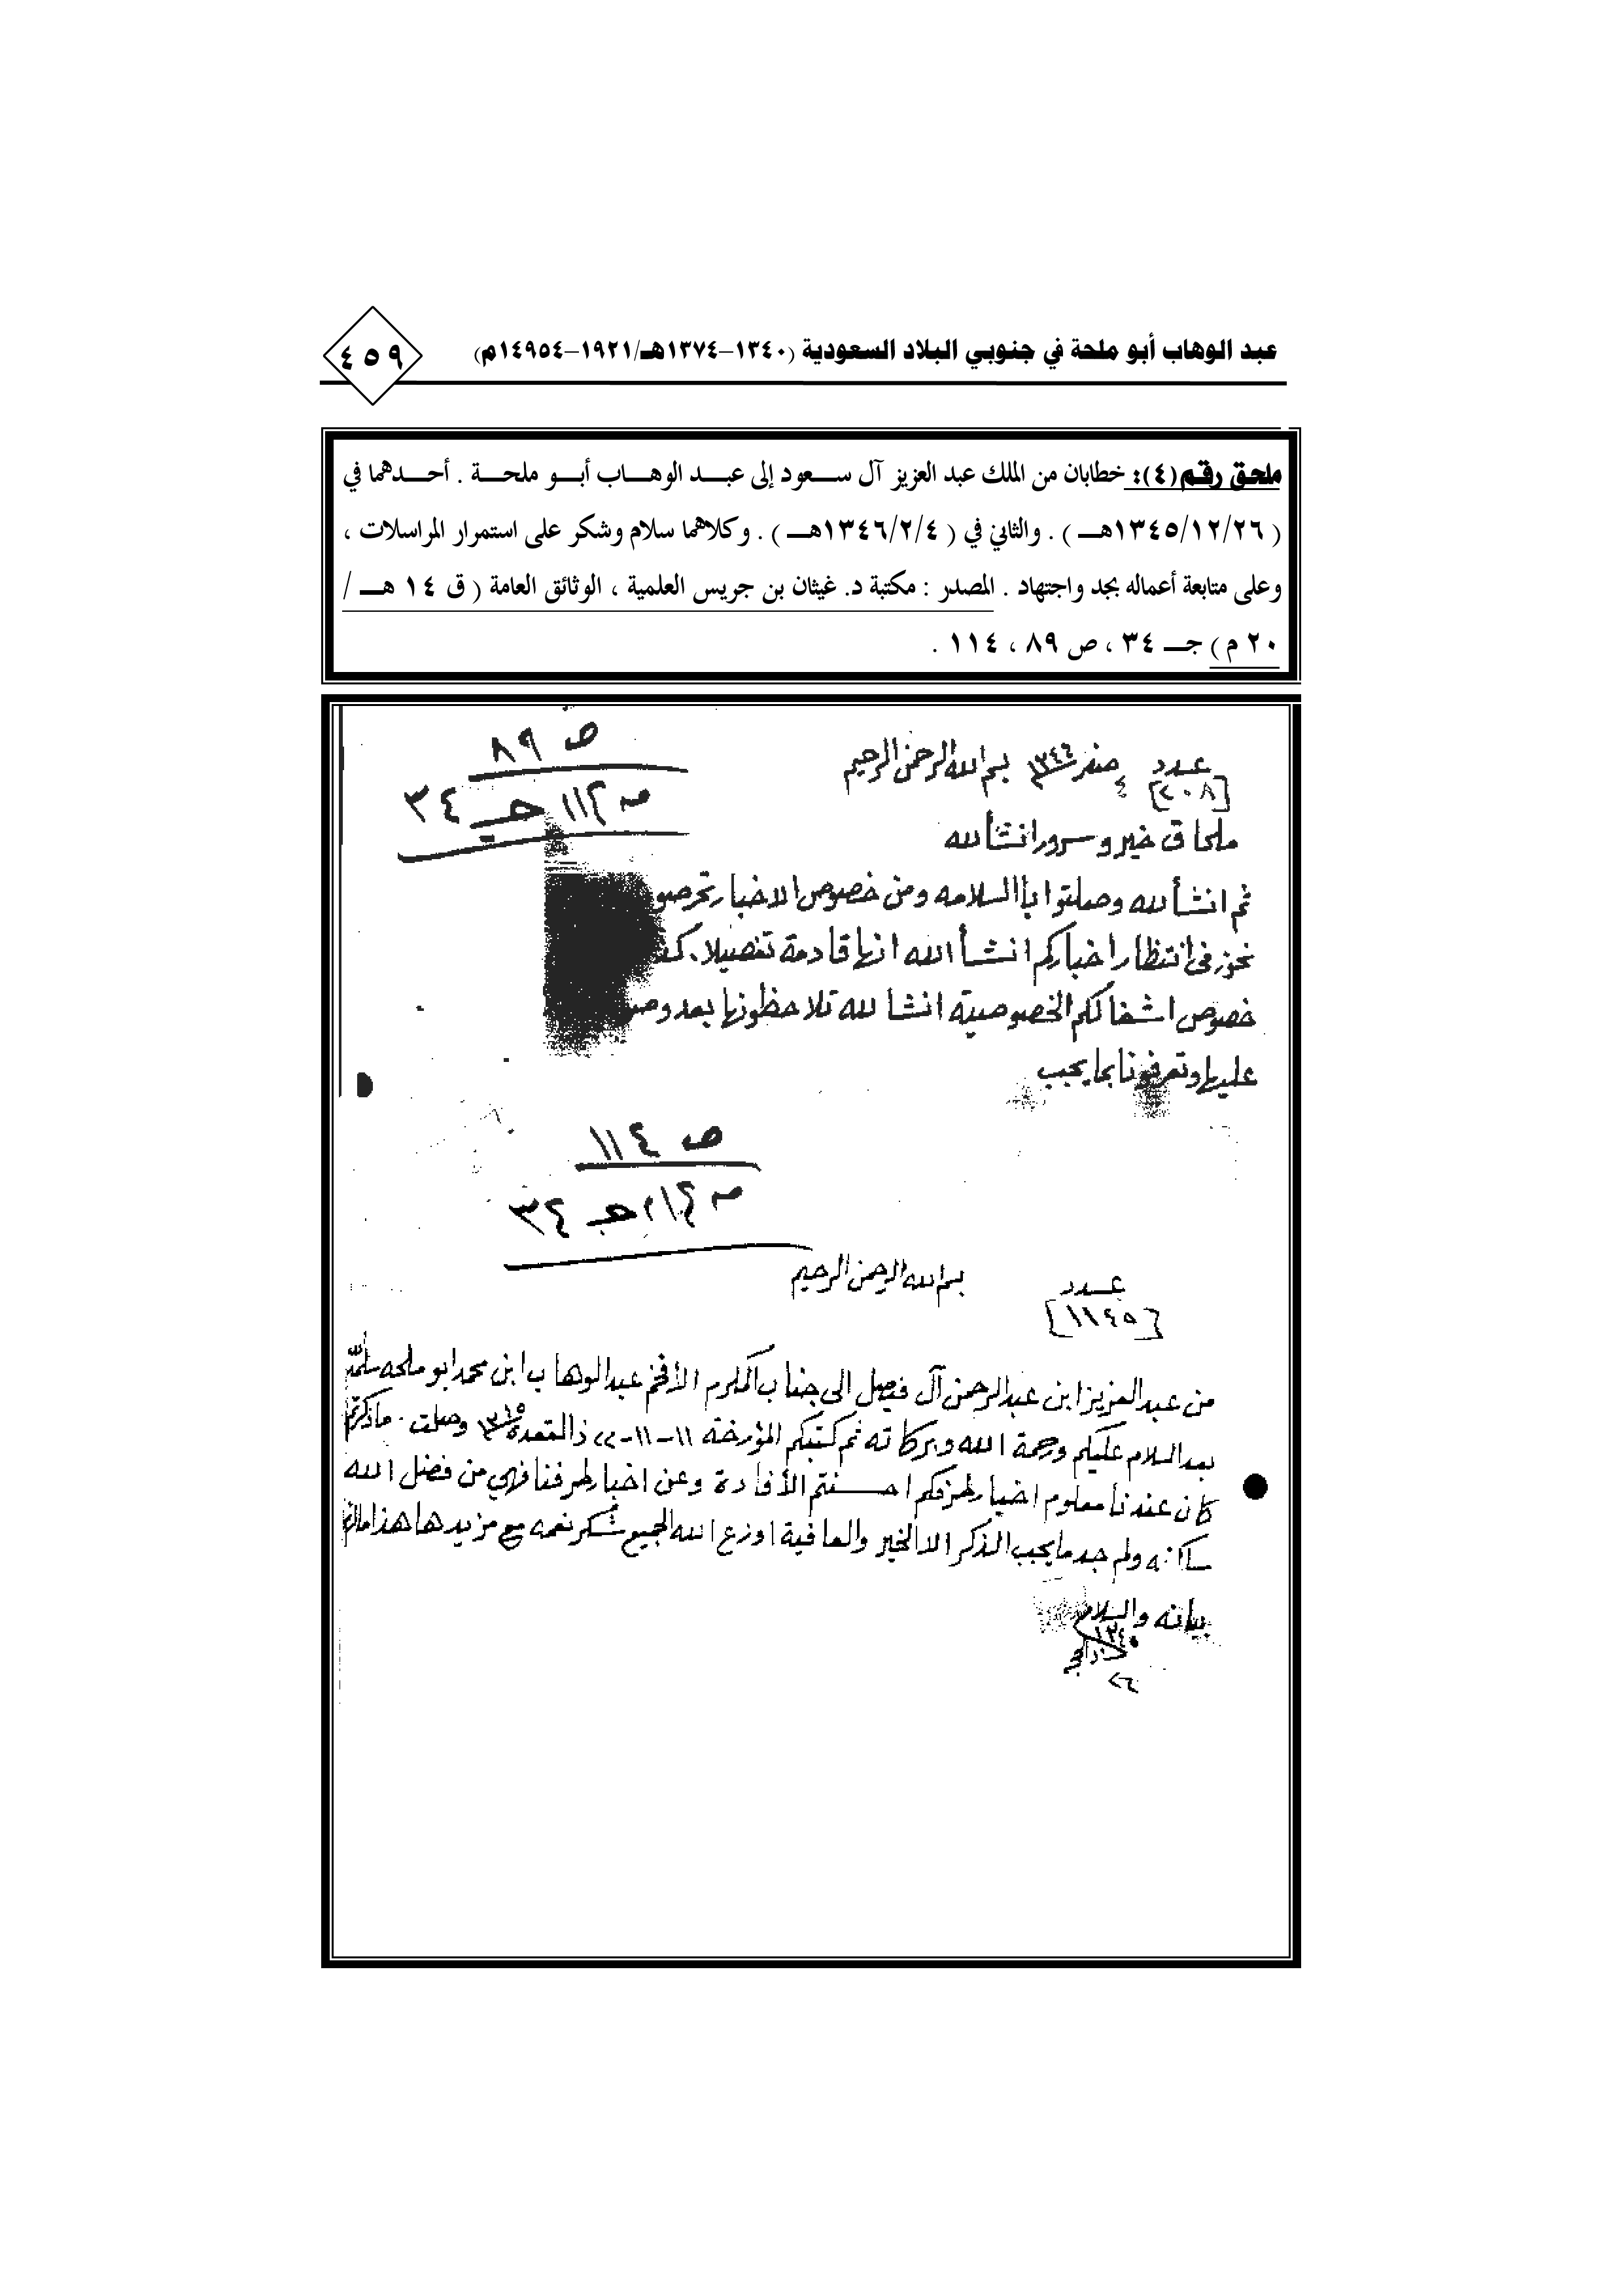 عبد الوهاب أبو ملحة في جنوبي البلاد السعودية (١٣٤٠-١٣٧٤هـ/١٩٢١-١٤٩٥٤م)
٤٥٩
ملحق رقم (٤): خطابان من الملك عبد العزيز آل سـعود إلى عبـد الوهـاب أبـو ملحـة . أحـدهما في
( ١٣٤٥/١٢/٢٦هـ ) . والثاني في ( ١٣٤٦/٢/٤هـ ) . وكلاهما سلام وشكر على استمرار المراسلات ،
وعلى متابعة أعماله بجد واجتهاد . المصدر : مكتبة د. غيثان بن جريس العلمية ، الوثائق العامة ( ق ١٤ هـ /
٢٠ م ) جـ ٣٤ ، ص ٨٩ ، ١١٤ .
ص ٨٩
جـ ٣٤
عدد ٤ صفر ١٣٤٦ بسم الله الرحمن الرحيم
[٢٠٨]
ملحاق خير وسرور انشألله
ثم انشألله وصلتوا باالسلامه ومن خصوص الاخبار تحرصو
نحن في انتظار اخباركم انشأ الله انها قادمة تفصيلا
خصوص اشغالكم الخصوصية انشألله تلاحظونها بعد
عليها وتعرفونا بما يجب
ص ١١٤
جـ ٣٤
عدد بسم الله الرحمن الرحيم
[١١٤٥]
من عبدالعزيز ابن عبدالرحمن آل فيصل الى جناب المكرم الأفخم عبدالوهاب ابن محمد ابو ملحه سلمه
بعد السلام عليكم ورحمة الله وبركاته ثم كتبكم المؤرخة ١١-١١-٢٢ ذالقعدة ١٣٤٥ وصلت . ماذكرتم
كان عندنا معلوم اخبار طرفكم احسنتم الأفادة وعن اخبار طرفنا فهي من فضل الله
ساكنه ولم جد ما يجب الذكر الا الخير والعافية اوزع الله الجميع شكر نعمه مع مزيدها هذا مالزم
بيانه والسلام
٢٦